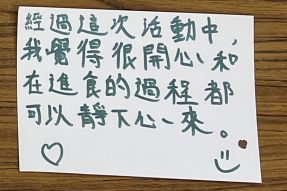 經過這次活動中,
我覺得很開心和
在進食的過程都
可以靜下心來。